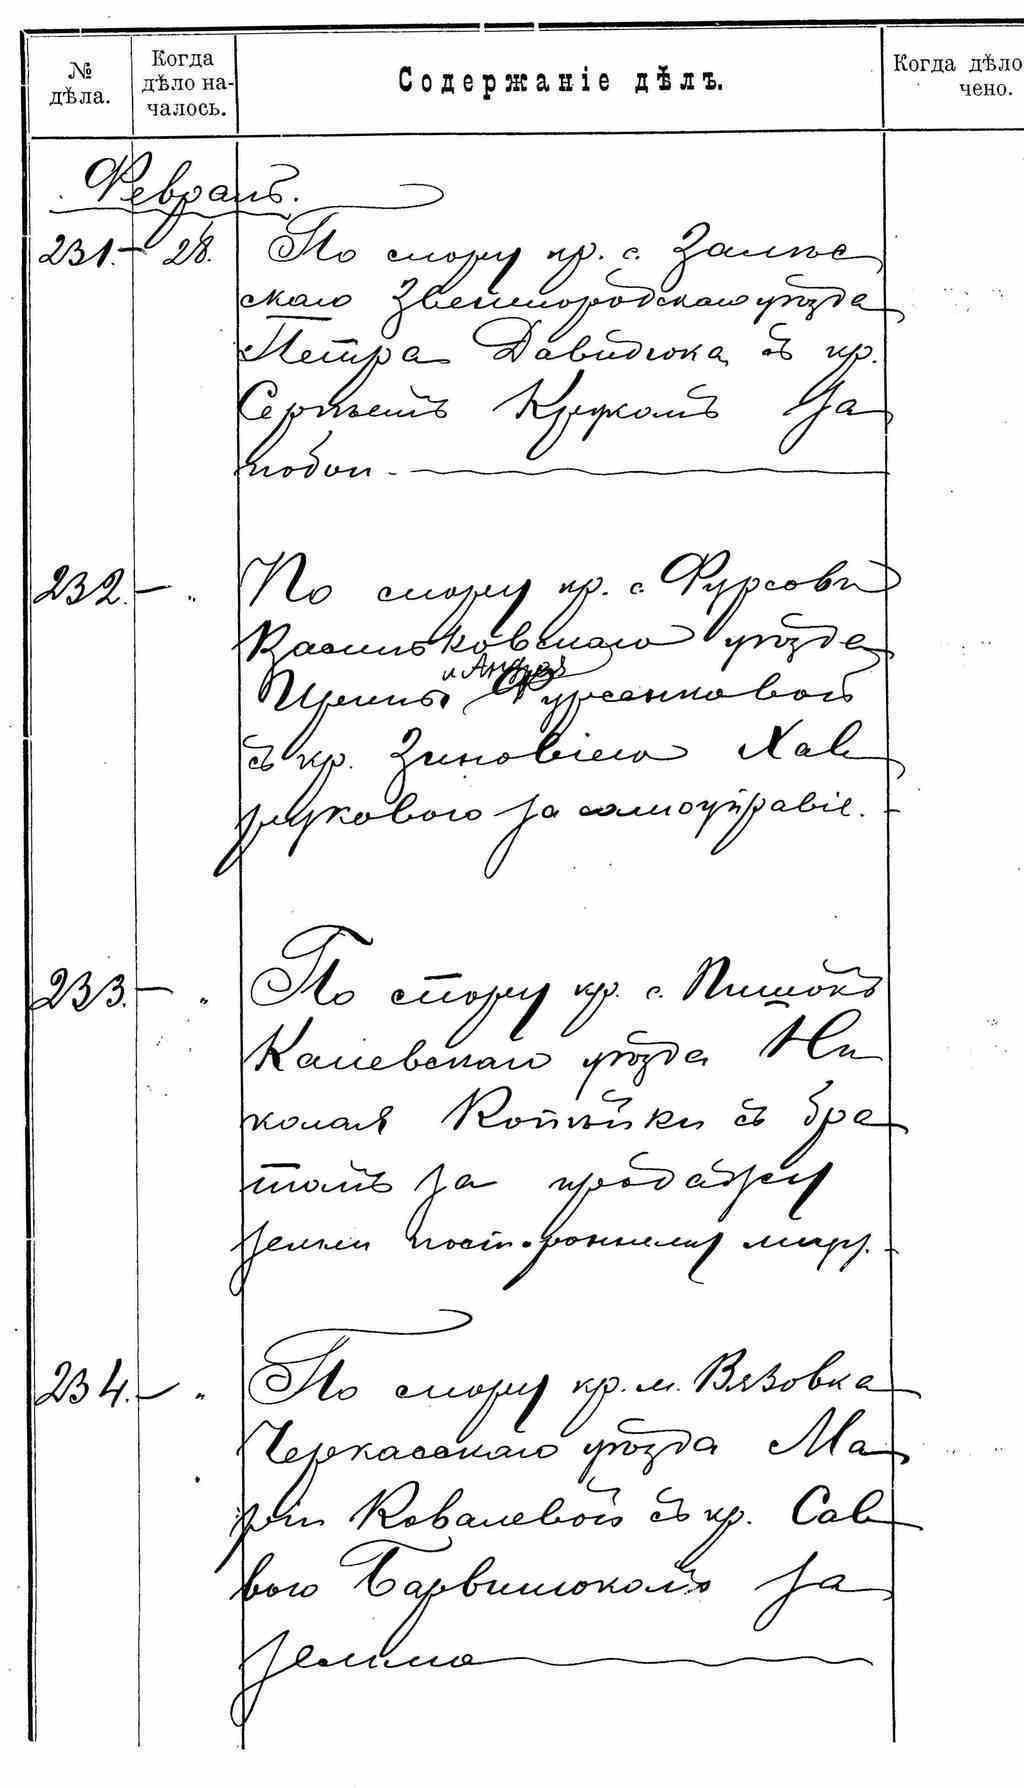 № дѣла.
Когда дѣло началось.
Содержаніе дѣлъ.
Когда дѣло
чено.
Февраль.
231. 28. По спору кр. с. Залѣс
скаго Звенигородскаго уѣзда
Петра Давидюка съ кр.
Сергѣемъ Крукомъ за
побои.
232. — „ По спору кр. с. Фурсовки
Васильковскаго уѣзда
и Андрея
Ирины Фурсенковой
съ кр. Зиновіею Хав
руковою за самоуправіе.
233. — „ По спору кр. с. Пишокъ
Каневскаго уѣзда Ни
колая Копѣйки съ бра
томъ за продажу
земли постороннему лицу.
234. — „ По спору кр. м. Вязовка
Черкасскаго уѣзда Ма
ріи Ковалевой съ кр. Сав
вою Барвинокомъ за
землю